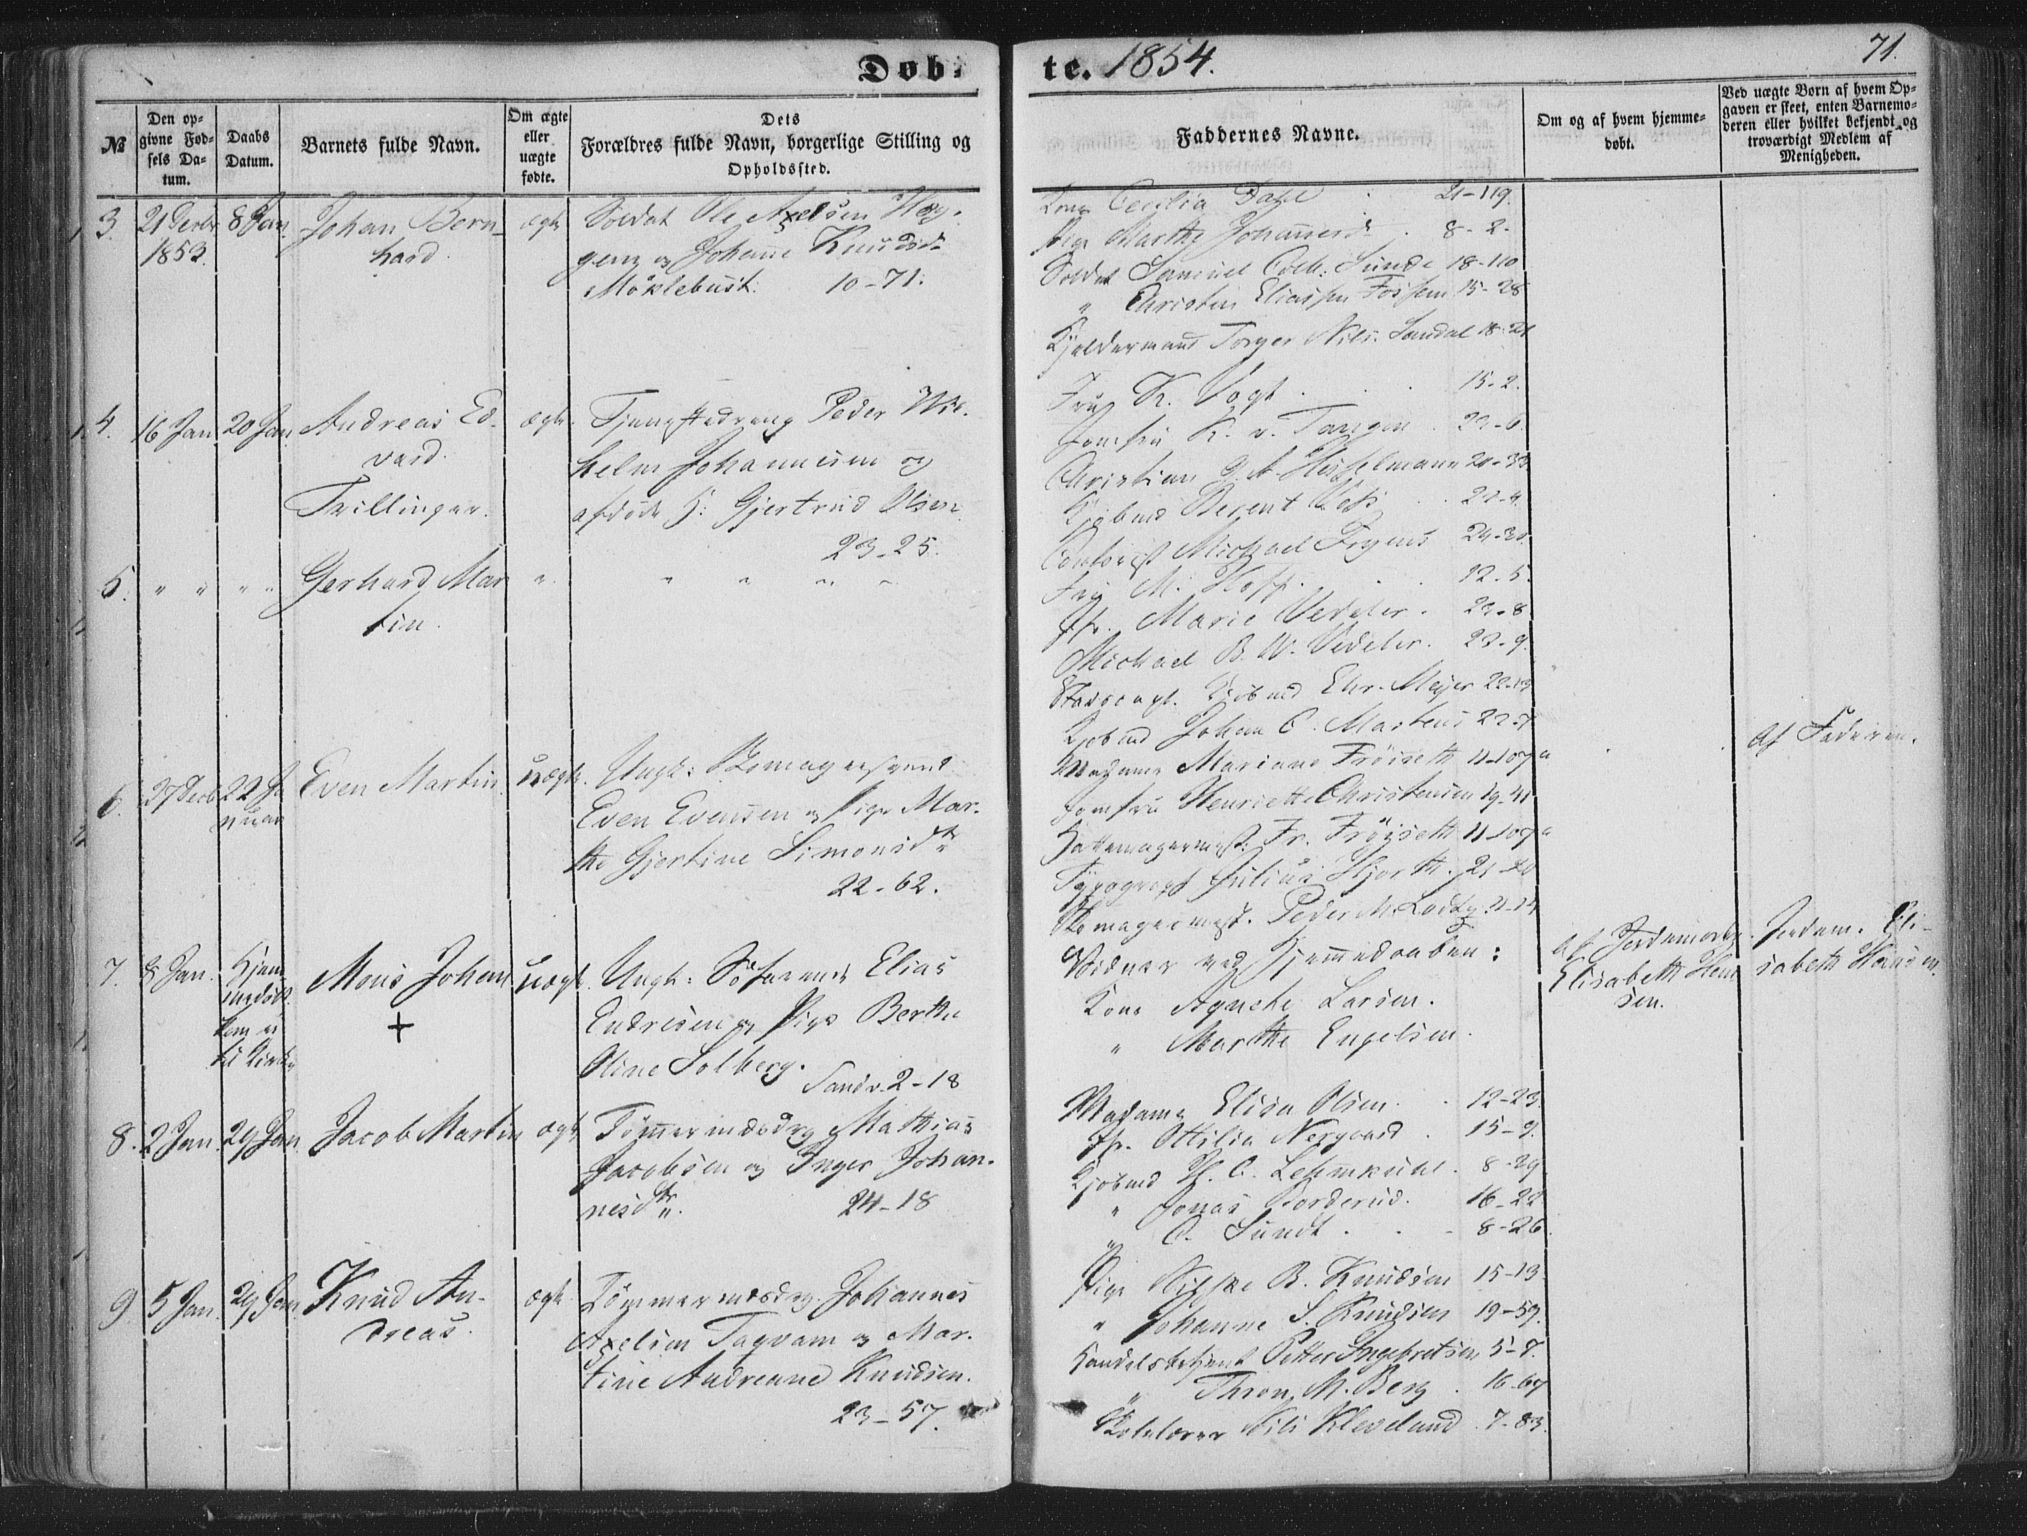 Døb-
te. 1854.
71.
№
Den op-
givne Fød-
sels Da-
tum.
Daabs
Datum.
Barnets fulde Navn.
Om ægte
eller
uægte
fødte.
Dets
Forældres fulde Navn, borgerlige Stilling og
Opholdssted.
Faddernes Navne.
Om og af hvem hjemme-
døbt.
Ved uægte Børn af hvem Op-
gaven er skeet, enten Barnemo-
deren eller hvilket bekjendt og
troværdigt Medlem af
Menigheden.
3. 21 Decbr 8 Jan. Johan Bern- ægte Soldat Ole Axelsen
1853. hard. og Johanne Knudsd.
Møklebust. 10-71.
Kone Cecilia Dahl 21-119.
Pige Marthe Johannesd. 8-2.
Soldat Samuel Sunde 18-110
" Christen Eliassen 15-28
Torger Nils. Sandal 18-21
4. 16 Jan 20 Jan Andreas Ed- ægte. Tjenestedreng Peder Wil-
vard. helm Johannesen og
Tvillinger. afdøde H: Gjertrud Olsen
23-25.
Fru K. Vogt . 15-2.
Jomfru K. v. Tangen . 22-6.
Christian 20-33
Kjøbmd Berent 22-4.
Contorist Michael 24-30.
5. " " " " Gerhard Mar- " " " " "
tin.
Fru M. Hopp. 12-5.
Jfr. Marie Vedeler. 22-8
Michael B. W. Vedeler. 22-9.
Kjøbmd Chr. Meyer 22-13
Kjøbmd Johan C. Martens 22-7
6. 27 Decb 22 Ja- Even Martin uægte. Ungk: Skomagersvend
nuar Even Evensen og Pige Mar-
the Gjertine Simonsdtr.
22-62.
Madame Mariane Frøiseth 11-107a
Jomfru Henriette Christensen 19-41
Hattemagermest. Fr. Frøiseth 11-107a
Typograph Julius Hjorth. 21-40
Skomagermest. Peder M. 11-14
Af Faderen.
7. 8 Jan. Hjem- Mons Johan uægte. Ungk: Søfarende Elias
medøbt + Endresen og Pige Berthe
Kom ei Oline Solberg.
til Kirke Sandv. 2-18
Vidner ved Hjemmedaaben:
Kone Agnethe Larsen.
" Marthe Engelsen.
Af Jordemoder
Elisabeth Han-
sen.
Jordem. Eli-
sabeth Hansen.
8. 2 Jan. 29 Jan Jacob Martin ægte Tømmermdsdrg Mathias
Jacobsen og Inger Johan-
nesdtr. 24-18
Madame Elisa Olsen. 12-23.
Jfr. Ottilia Nergaard . 15-9.
Kjøbmd H. C. Lehmkuhl. 8-29
" Jonas Borderud. 16-22
" C. Sundt . . 8-26
9. 5 Jan. 29 Jan. Knud An- ægte Tømmermdsdrg. Johannes
dreas. Axelsen Taqvam og Mar-
tine Andreane Knudsen.
23-57.
Pige B. Knudsen 15-13
" Johanne S. Knudsen 19-59.
Handelsbetjent Petter Ingebretsen 5-7.
" Thron M. Berg . 16-67
Skolelærer Nils Kleveland. 7-83.